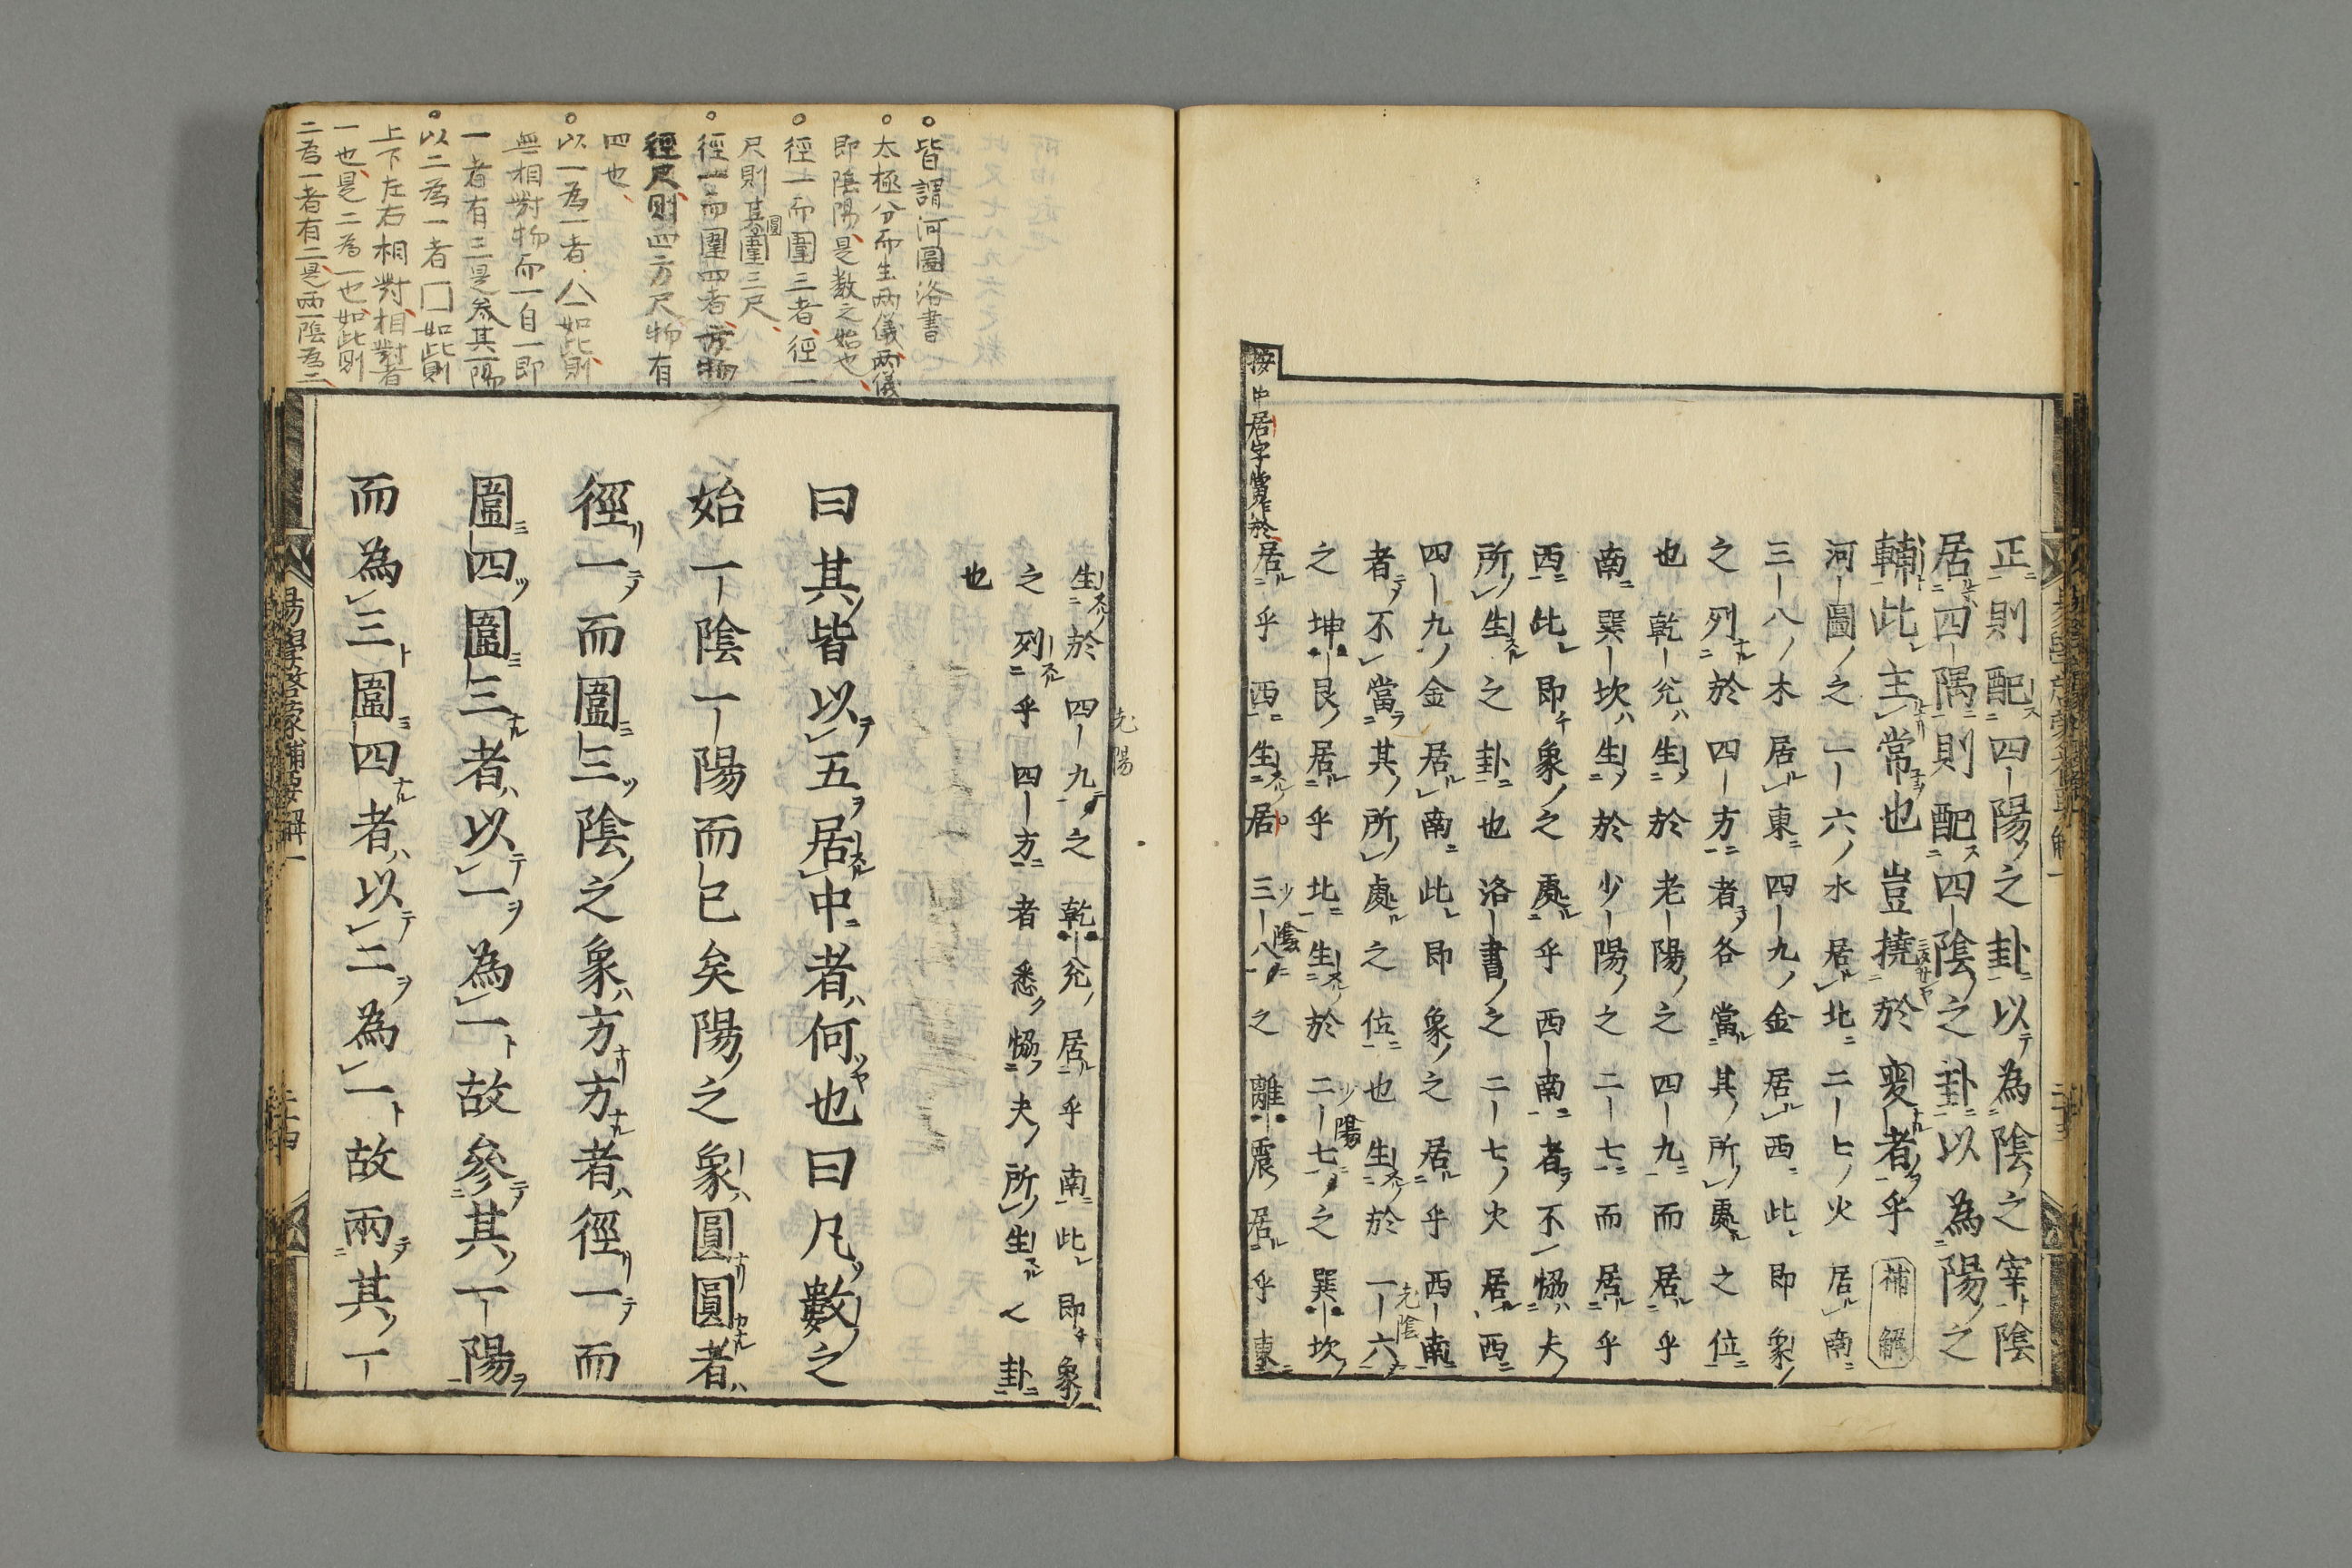 正則配四陽之卦以為陰之宰陰
居四隅則配四陰之卦以為陽之
輔此主常也豈撓於變者乎補解
河圖之一六水居北二七火居南
三八木居東四九金居西此即象
之列於四方者各當其所處之位
也乾兌生於老陽之四九而居乎
南巽坎生於少陽之二七而居乎
西此即象之處乎西南者不恊夫
所生之卦也洛書之二七火居西
四九金居南此即象之居乎西南
者不當其所處之位也生於一六
老陰
之坤艮居乎北生於二七之巽坎
少陽
居乎西生居三八之離震居乎東
少陰
按中居字當作於
生於四九之乾兌居乎南此即象
老陽
之列乎四方者悉恊夫所生之卦
也
曰其皆以五居中者何也曰凡數之
始一陰一陽而已矣陽之象圓圓者
徑一而圍三陰之象方方者徑一而
圍四圍三者以一為一故參其一陽
而為三圍四者以二為一故兩其一
易學啓蒙補要解一
二十四
皆謂河圖洛書
太極分而生兩儀兩儀
即陰陽是数之始也
徑一而圍三者徑一
尺則其圍三尺
圓
徑一而圍四者方物
徑尺則四方尺物有
四也
以一為一者人如此則
無相對物而一自一即
一者有三是參其一陽
以二為一者冂如此則
上下左右相對相對者
一也是二為一也如此則
二為一者有二是兩一陰為二